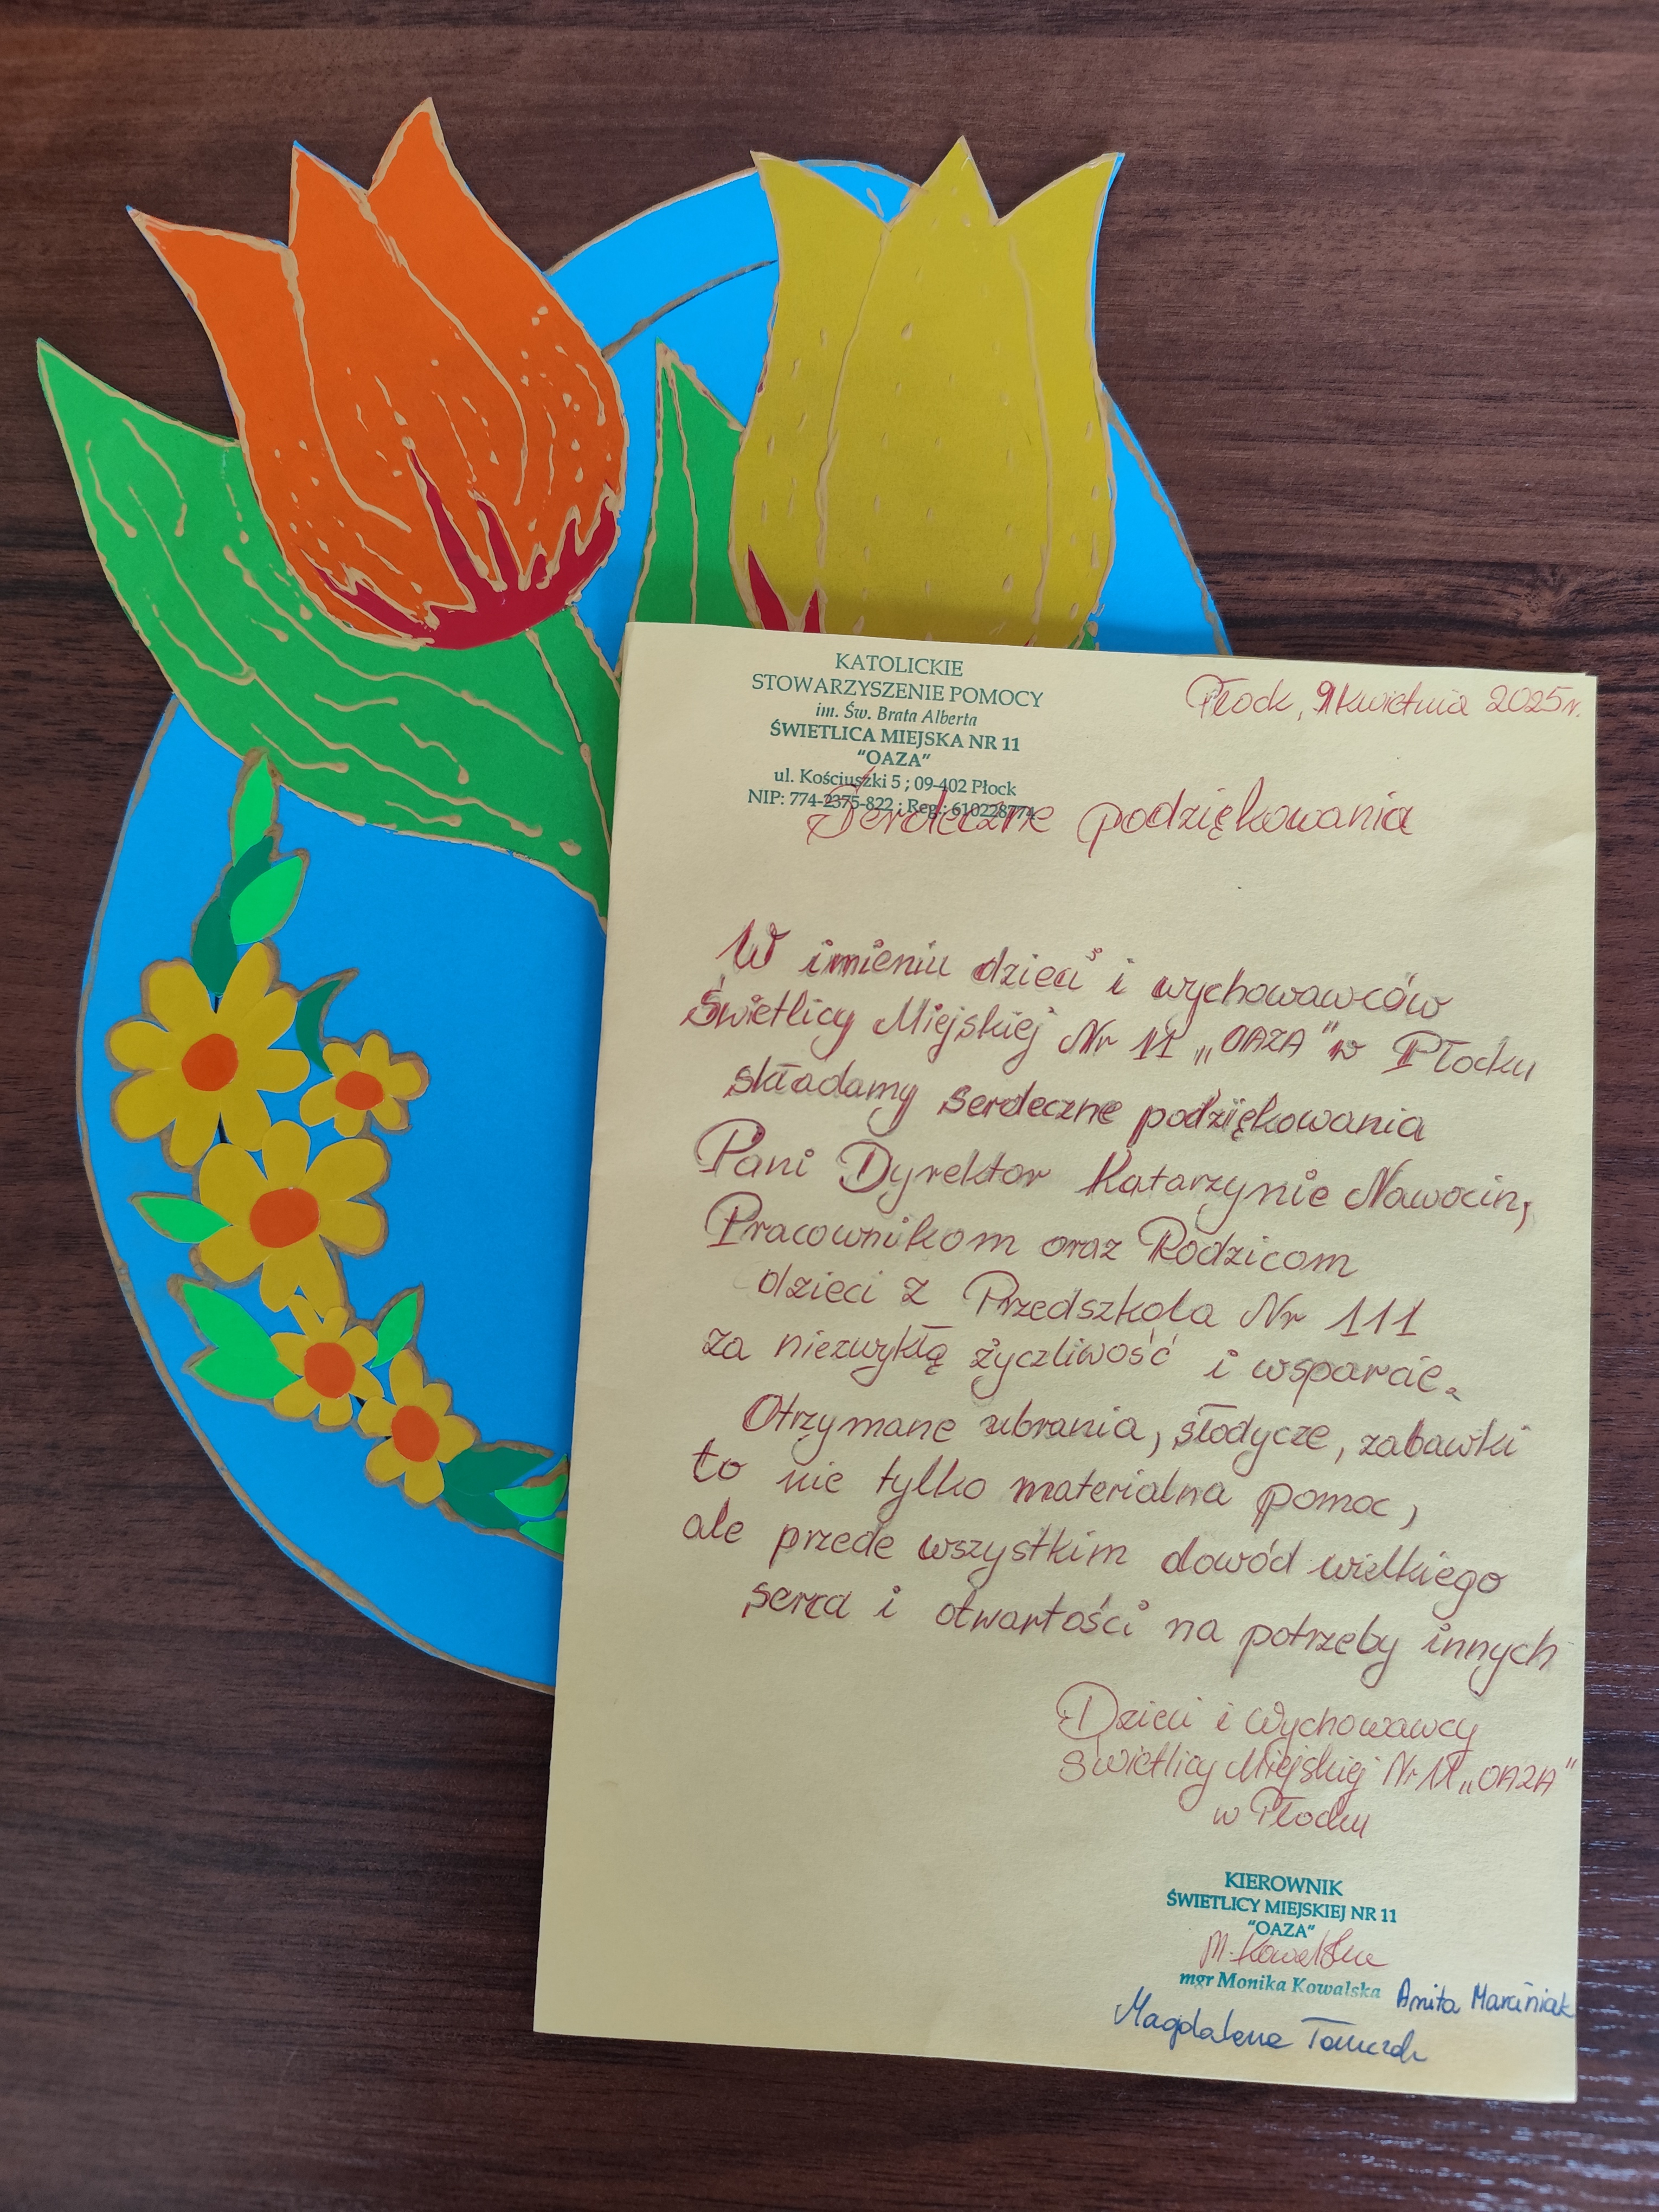 KATOLICKIE
STOWARZYSZENIE POMOCY
im. Św. Brata Alberta
ŚWIETLICA MIEJSKA NR 11
"OAZA"
ul. Kościuszki 5 ; 09-402 Płock
NIP: 774-2375-822 ; Reg.: 610228774
Płock, 9 kwietnia 2025r.
Serdeczne podziękowania
W imieniu dzieci i wychowawców
Świetlicy Miejskiej Nr 11 „OAZA" w Płocku
składamy serdeczne podziękowania
Pani Dyrektor Katarzynie Nawocin,
Pracownikom oraz Rodzicom
dzieci z Przedszkola Nr 111
za niezwykłą życzliwość i wsparcie.
Otrzymane ubrania, słodycze, zabawki
to nie tylko materialna pomoc,
ale przede wszystkim dowód wielkiego
serca i otwartości na potrzeby innych
Dzieci i Wychowawcy
Świetlicy Miejskiej Nr 11 „OAZA"
w Płocku
KIEROWNIK
ŚWIETLICY MIEJSKIEJ NR 11
"OAZA"
M. Kowalska
mgr Monika Kowalska
Anita Marciniak
Magdalena Tomczak